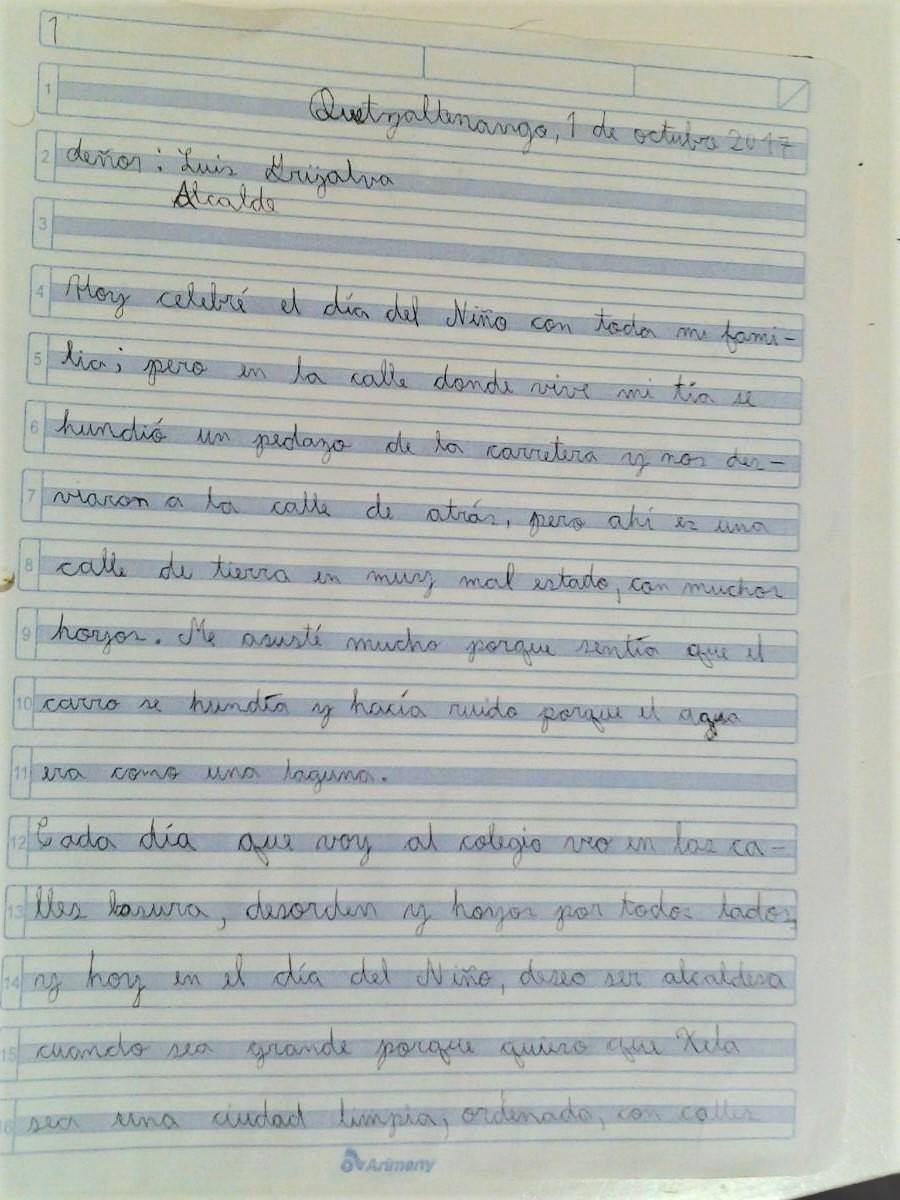 1
1
Quetzaltenango, 1 de octubre 2017
2 Señor: Luis Grijalva
Alcalde
3
4 Hoy celebré el día del Niño con toda mi fami-
5 lia; pero en la calle donde vive mi tía se
6 hundió un pedazo de la carretera y nos des-
7 viaron a la calle de atrás, pero ahí es una
8 calle de tierra en muy mal estado, con muchos
9 hoyos. Me asusté mucho porque sentía que el
10 carro se hundía y hacía ruido porque el agua
11 era como una laguna.
12 Cada día que voy al colegio veo en las ca-
13 lles basura, desorden y hoyos por todos lados,
14 y hoy en el día del Niño, deseo ser alcaldesa
15 cuando sea grande porque quiero que Xela
16 sea una ciudad limpia, ordenada, con calles
Arimany